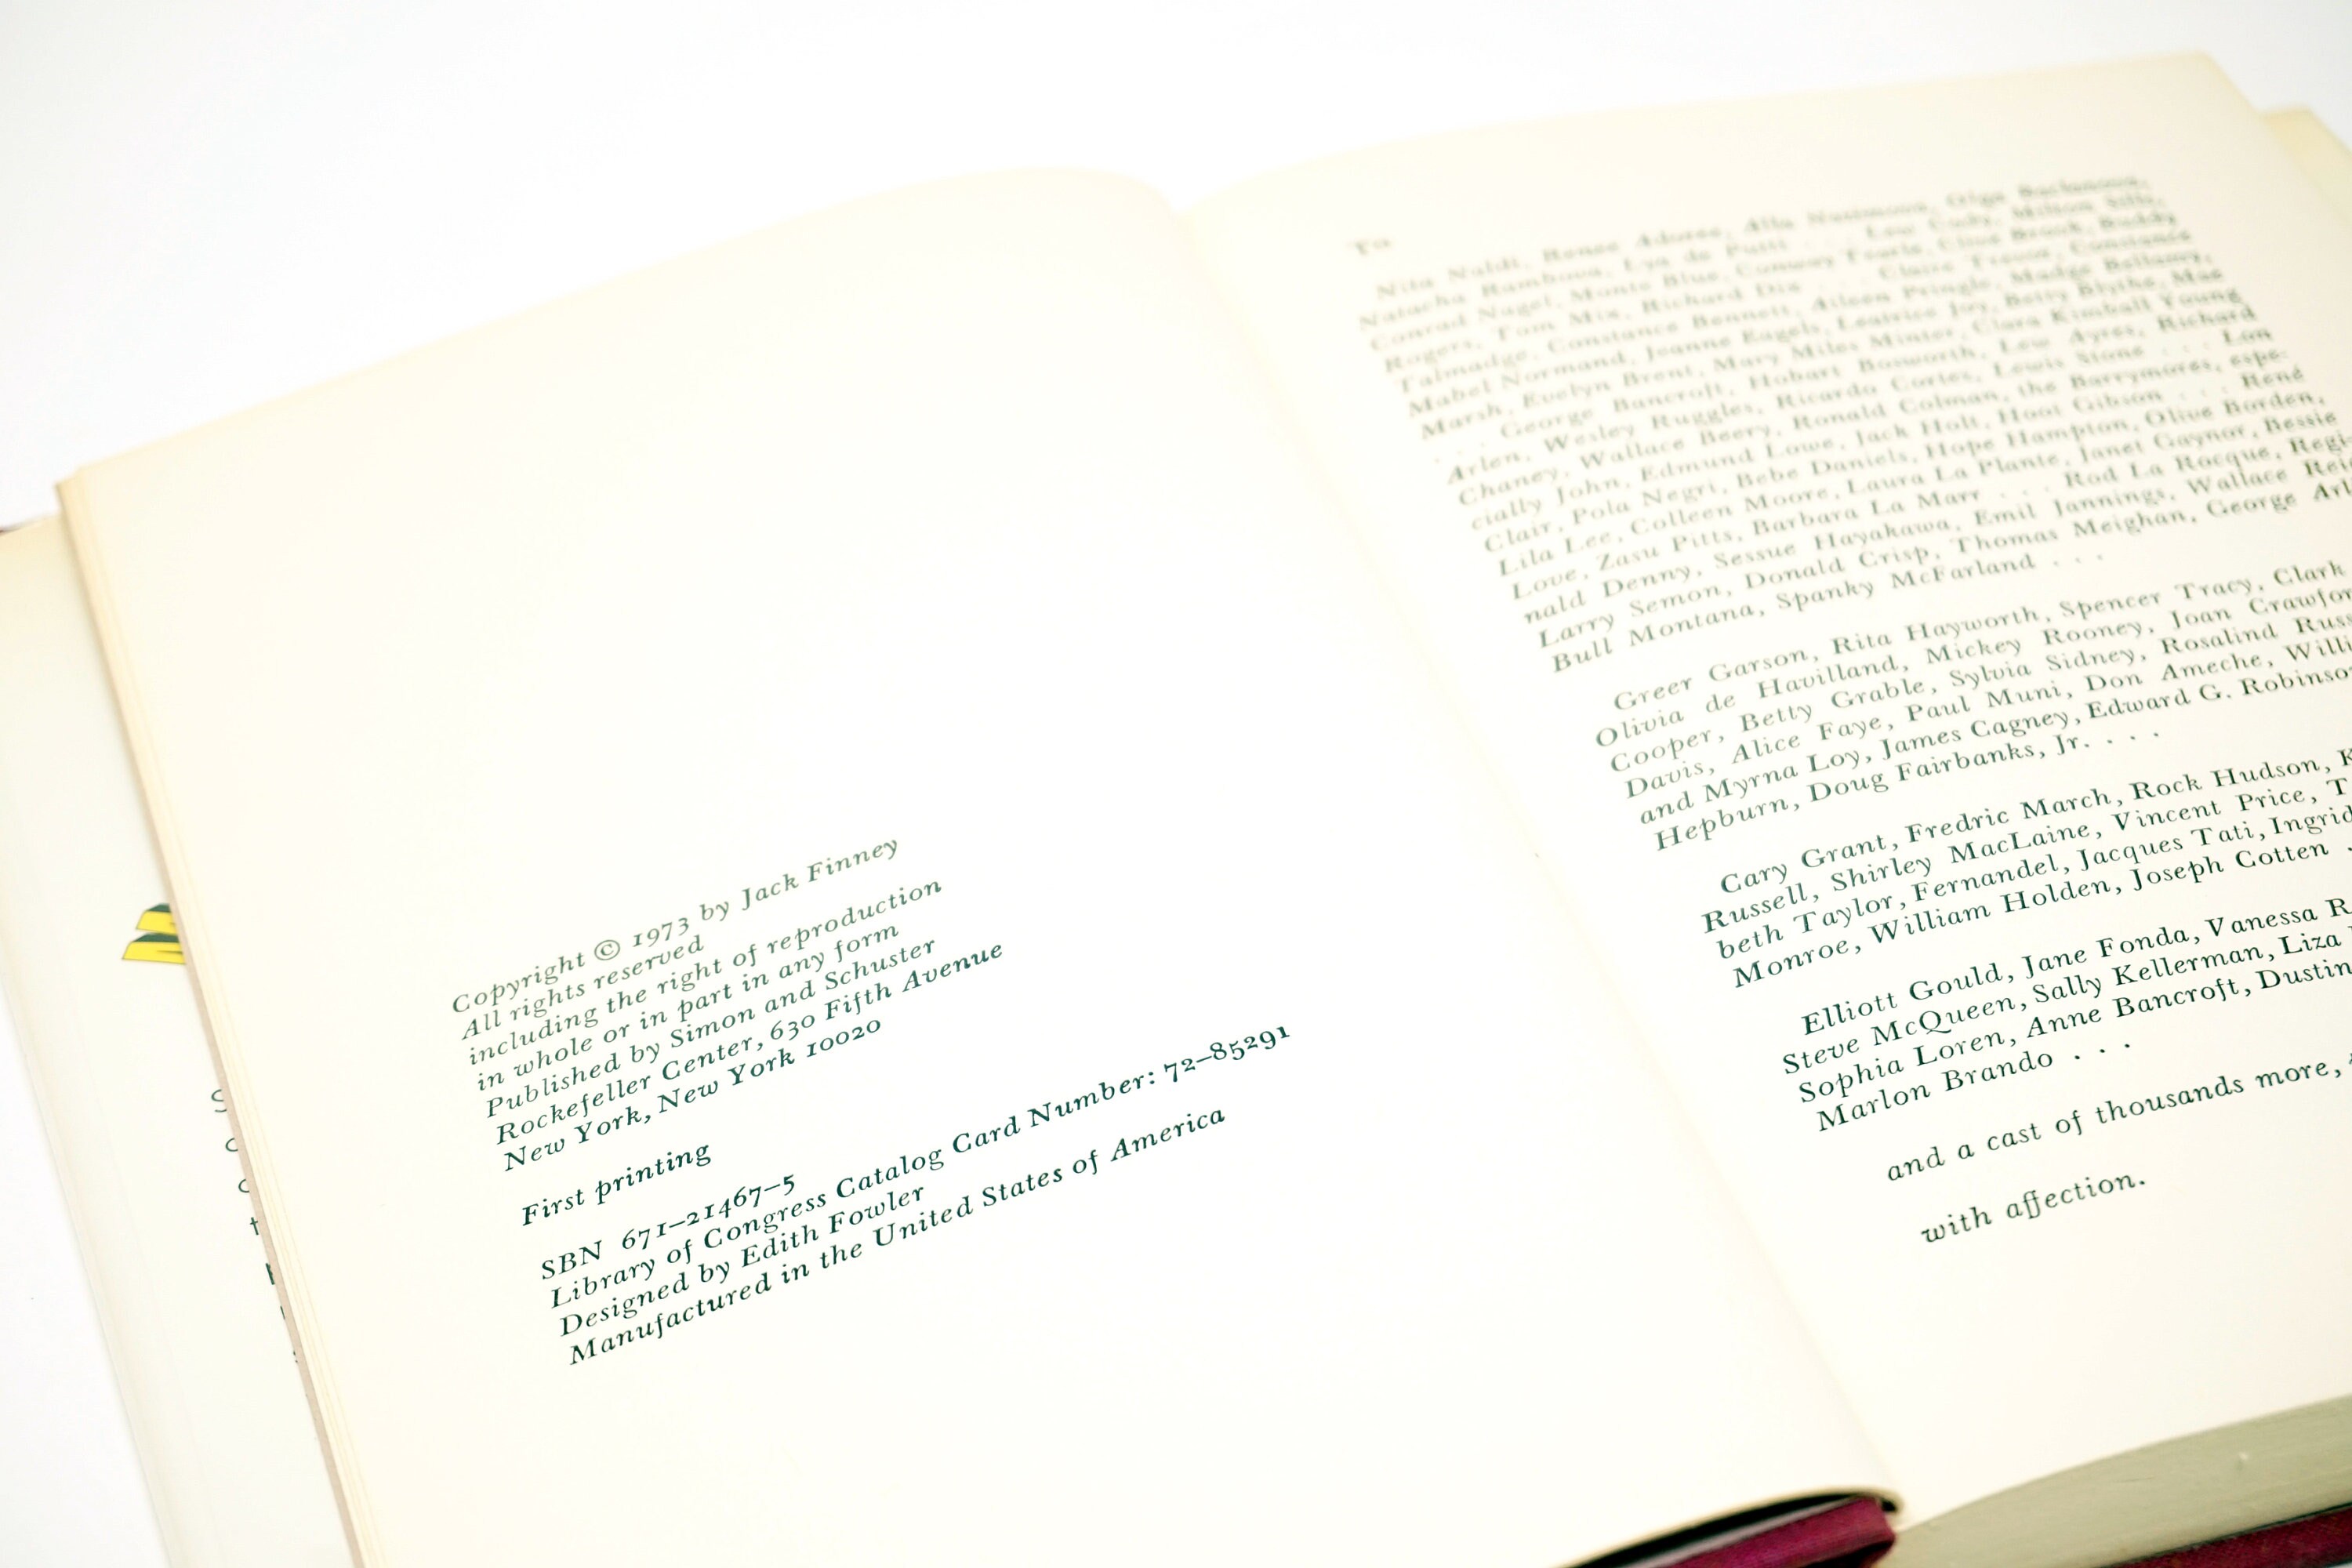 Copyright © 1973 by Jack Finney
All rights reserved
including the right of reproduction
in whole or in part in any form
Published by Simon and Schuster
Rockefeller Center, 630 Fifth Avenue
New York, New York 10020
First printing
SBN 671–21467–5
Library of Congress Catalog Card Number: 72–85291
Designed by Edith Fowler
Manufactured in the United States of America
To
Nita Naldi, Renee Adoree, Alla Nazimova, Olga Baclanova,
Natacha Rambova, Lya de Putti . . . Lew Cody, Milton Sills,
Conrad Nagel, Monte Blue, Conway Tearle, Clive Brook, Buddy
Rogers, Tom Mix, Richard Dix . . . Claire Trevor, Constance
Talmadge, Constance Bennett, Aileen Pringle, Madge Bellamy,
Mabel Normand, Jeanne Eagels, Leatrice Joy, Betty Blythe, Mae
Marsh, Evelyn Brent, Mary Miles Minter, Clara Kimball Young
. . . George Bancroft, Hobart Bosworth, Lew Ayres, Richard
Arlen, Wesley Ruggles, Ricardo Cortez, Lewis Stone . . . Lon
Chaney, Wallace Beery, Ronald Colman, the Barrymores, espe-
cially John, Edmund Lowe, Jack Holt, Hoot Gibson . . . René
Clair, Pola Negri, Bebe Daniels, Hope Hampton, Olive Borden,
Lila Lee, Colleen Moore, Laura La Plante, Janet Gaynor, Bessie
Love, Zasu Pitts, Barbara La Marr . . . Rod La Rocque, Regi-
nald Denny, Sessue Hayakawa, Emil Jannings, Wallace
Larry Semon, Donald Crisp, Thomas Meighan, George
Bull Montana, Spanky McFarland . . .
Greer Garson, Rita Hayworth, Spencer Tracy, Clark
Olivia de Havilland, Mickey Rooney, Joan
Cooper, Betty Grable, Sylvia Sidney, Rosalind
Davis, Alice Faye, Paul Muni, Don Ameche,
and Myrna Loy, James Cagney, Edward G.
Hepburn, Doug Fairbanks, Jr. . . .
Cary Grant, Fredric March, Rock Hudson,
Russell, Shirley MacLaine, Vincent Price,
beth Taylor, Fernandel, Jacques Tati, Ingrid
Monroe, William Holden, Joseph Cotten
Elliott Gould, Jane Fonda, Vanessa
Steve McQueen, Sally Kellerman, Liza
Sophia Loren, Anne Bancroft, Dustin
Marlon Brando . . .
and a cast of thousands more,
with affection.